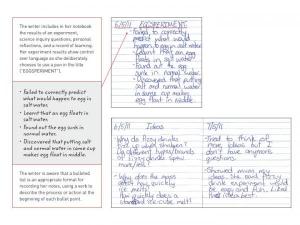 The writer includes in her notebook
the results of an experiment,
science inquiry questions, personal
reflections, and a record of learning.
Her experiment results show control
over language as she deliberately
chooses to use a pun in the title
("EGGSPERIMENT").
• Failed to correctly predict
what would happen to egg in
salt water.
• Learnt that an egg floats in
salt water.
• Found out the egg sunk in
normal water.
• Discovered that putting salt
and normal water in same cup
makes egg float in middle.
The writer is aware that a bulleted
list is an appropriate format for
recording her notes, using a verb to
describe the process or action at the
beginning of each bullet point.
6/5/11 EGGSPERIMENT
• Failed to correctly
predict what would
happen to egg in salt
water.
• Learnt that an egg
floats in salt water.
• Found out the egg
sunk in normal water.
• Discovered that putting
salt and normal water
in same cup makes
egg float in middle.
6/5/11 Ideas
• Why do fizzy drinks
fizz up when shaken?
Do different types/brands
of fizzy drink spew
more/less?
• Why does the
quickly
ice melt?
quickly does a
standard ice-cube melt?
7/5/11
• Tried to think of
more ideas but I
don't have anymore
questions.
• Showed mum my
ideas. She said fizzy
drink experiment would
be easy and fun. I like
that idea best.